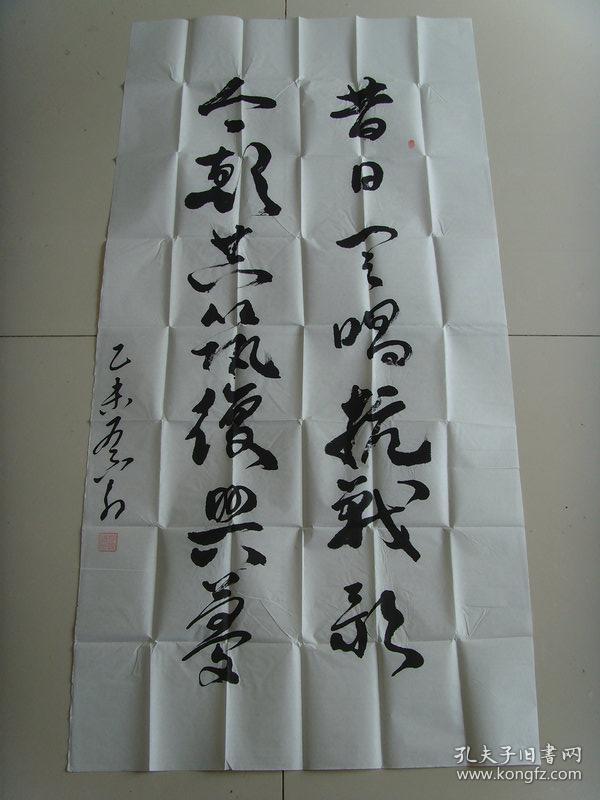 昔日唱抗戰歌
今朝共筑復興夢
乙未
孔夫子旧書网
www.kongfz.com